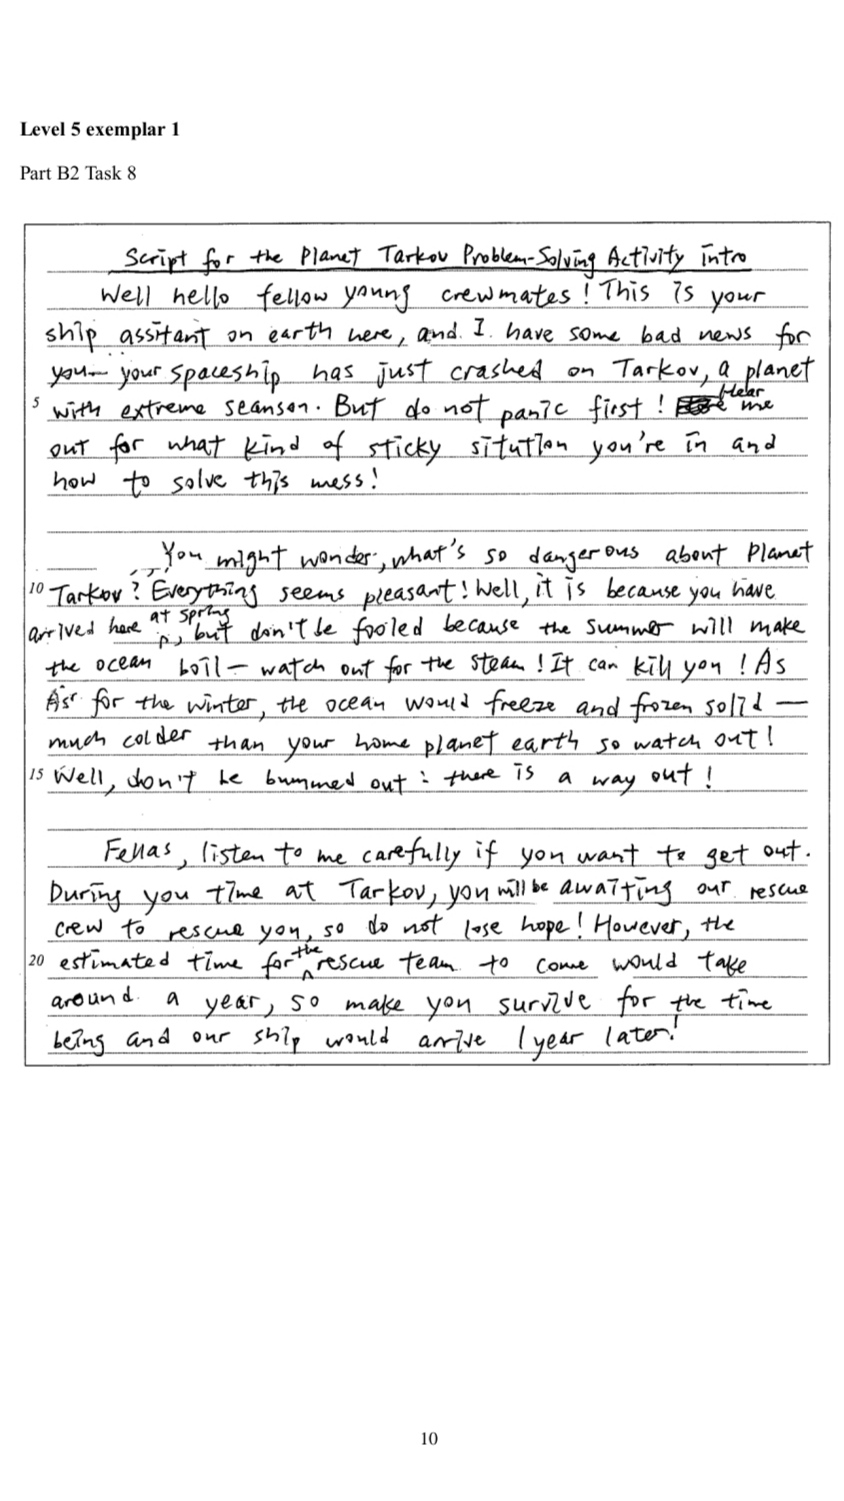 Level 5 exemplar 1
Part B2 Task 8
Script for the Planet Tarkov Problem-Solving Activity intro
Well hello fellow young crewmates! This is your
ship assitant on earth here, and I have some bad news for
you— your spaceship has just crashed on Tarkov, a planet
5 with extreme seanson. But do not panic first! Hear me
out for what kind of sticky sitution you're in and
how to solve this mess!
You might wonder, what's so dangerous about Planet
10 Tarkov? Everything seems pleasant! Well, it is because you have
arrived here at spring, but don't be fooled because the summer will make
the ocean boil — watch out for the steam! It can kill you! As
As for the winter, the ocean would freeze and frozen solid —
much colder than your home planet earth so watch out!
15 Well, don't be bummed out: there is a way out!
Fellas, listen to me carefully if you want to get out.
During you time at Tarkov, you will be awaiting our rescue
crew to rescue you, so do not lose hope! However, the
20 estimated time for the rescue team to come would take
around a year, so make you survive for the time
being and our ship would arrive 1 year later!
10